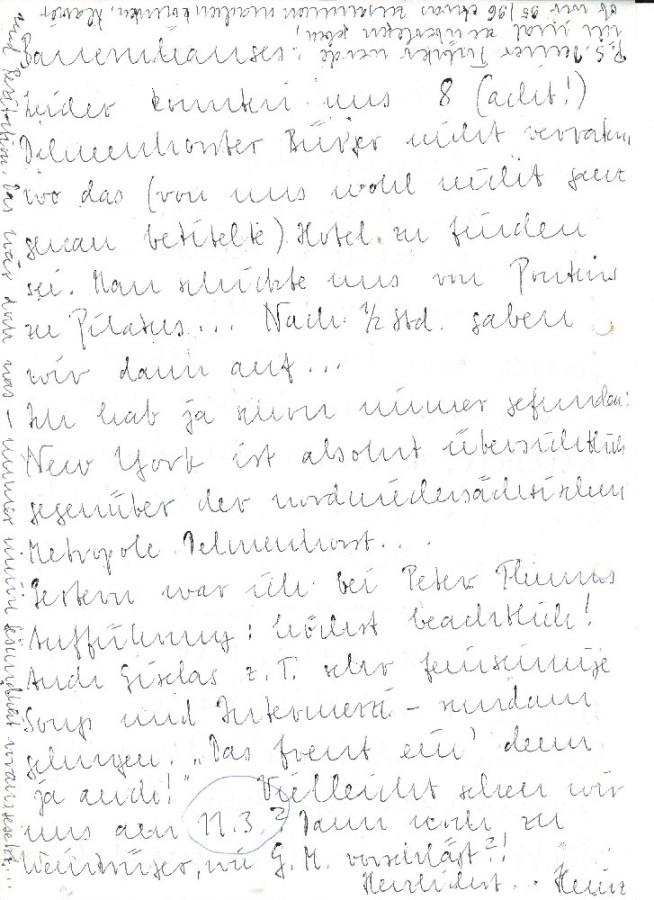 Bauernhauses:
Leider konnten uns 8 (acht!)
Delmenhorster Bürger nicht verraten,
wo das (von uns wohl nicht ganz
genau betitelte) Hotel zu finden
sei. Man schickte uns von Pontius
zu Pilatus... Nach 1/2 Std. gaben
wir dann auf...
Ich hab ja schon immer gefunden:
New York ist absolut übersichtlich
gegenüber der nordniedersächsischen
Metropole Delmenhorst...
Gestern war ich bei Peter
Aufführung: höchst beachtlich!
Auch Giselas z.T. sehr feinsinnige
Songs und Intermezzi - rundum
gelungen. „Das freut ein' denn
ja auch!" Vielleicht sehen wir
uns am 11.3.? Dann noch zu
wie G.M. vorschlägt?!
Herzlichst.. Heinz
P.S. Deiner Tochter werde
ich mal zu überlegen geben,
ob wir 95/96 etwas zusammen machen könnten, Klavier
und Rezitation. Das wär doch was - immer meine Gesundheit vorausgesetzt...